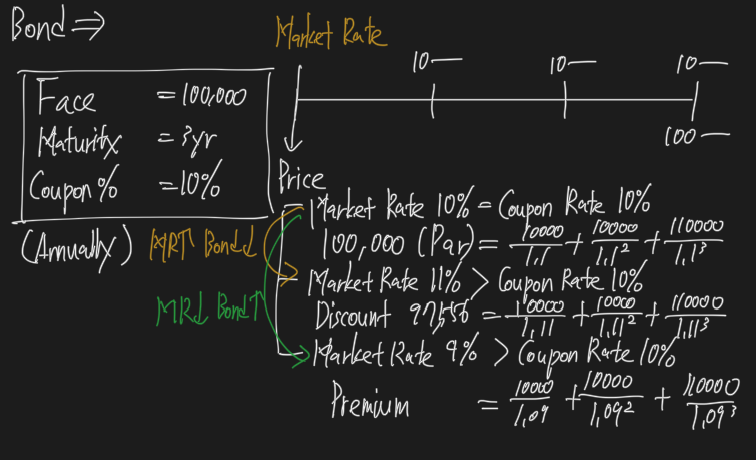 Bond ⇒
Market Rate
10— 10— 10—
100—
Face = 100,000
Maturity = 3yr
Coupon % = 10%
(Annually)
MR↑ Bond↓
MR↓ Bond↑
Price
Market Rate 10% = Coupon Rate 10%
100,000 (Par) = 10000/1.1 + 10000/1.1² + 110000/1.1³
Market Rate 11% > Coupon Rate 10%
Discount 97,556 = 10000/1.11 + 10000/1.11² + 110000/1.11³
Market Rate 9% > Coupon Rate 10%
Premium = 10000/1.09 + 10000/1.09² + 110000/1.09³